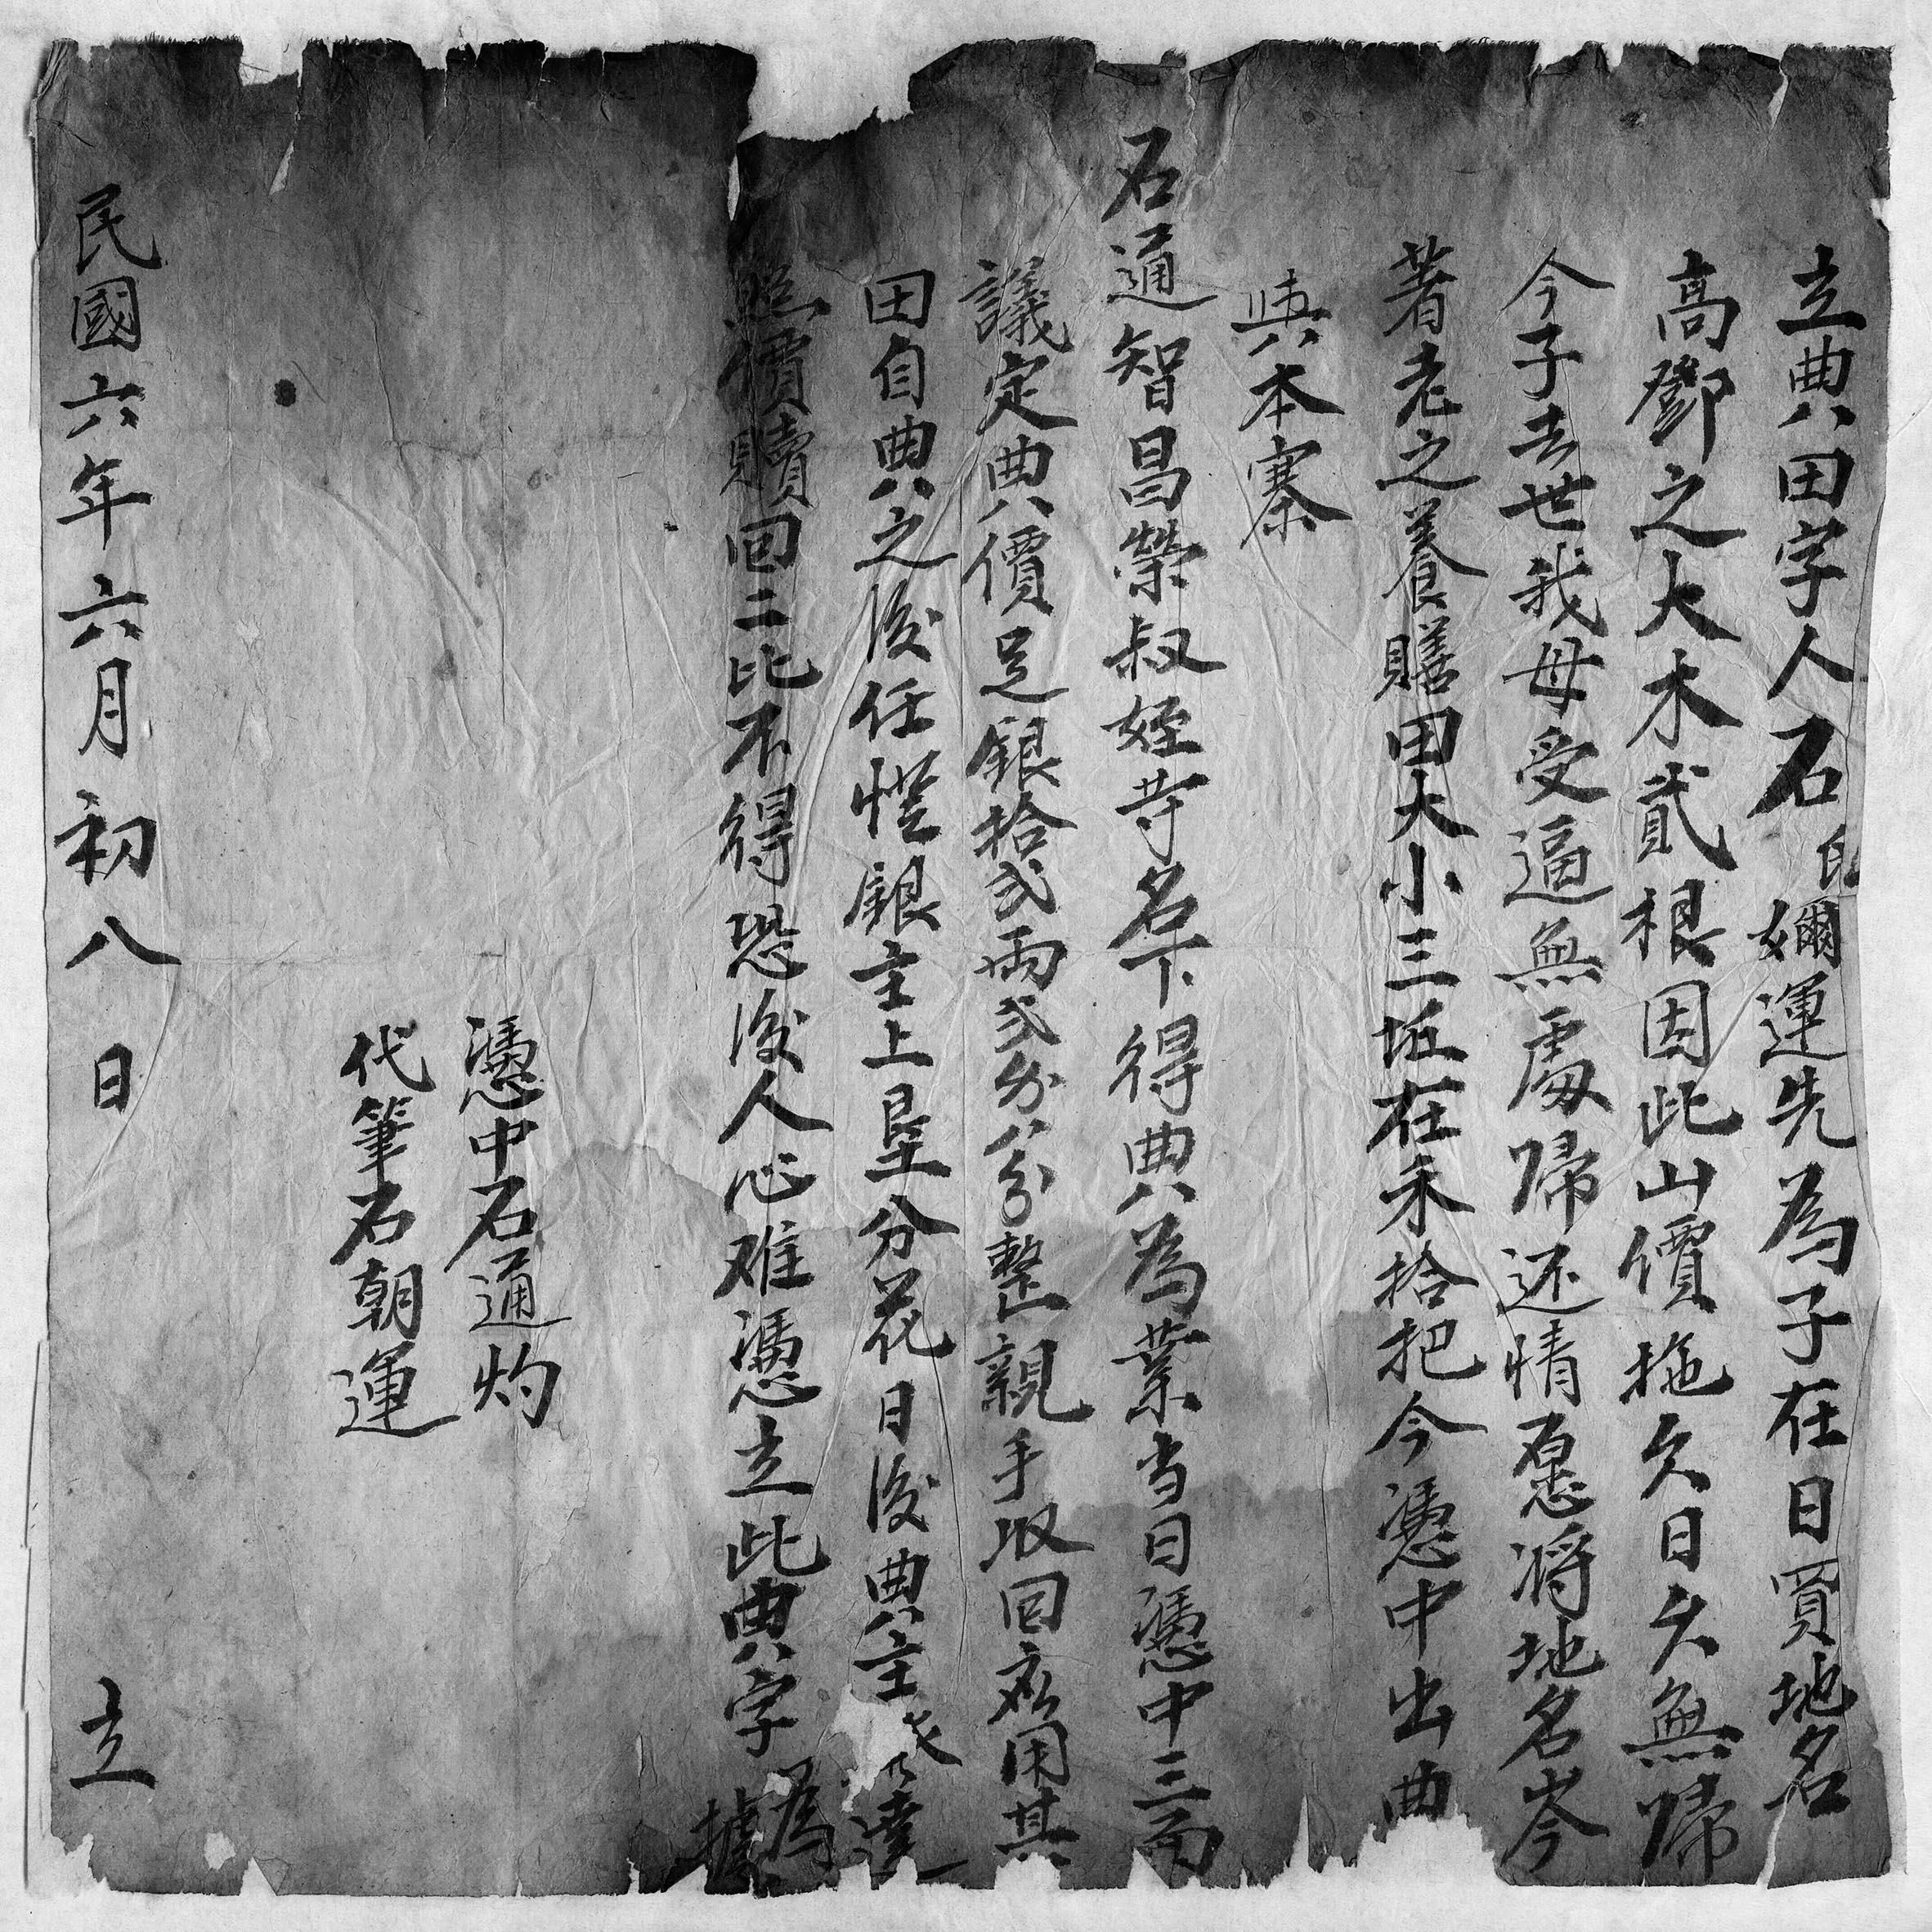 立典田字人石氏嬭運先為子在日買地名
高鄧之大木貳根因此山價拖久日久無歸
今子去世我母受逼無處歸还情愿将地名岑
著老之養贍田大小三坵在禾拾把今憑中出典
與本寨
石通智昌榮叔姪等名下得典為業当日憑中三面
議定典價足銀拾弍兩弍分八分整親手収回應用其
田自典之後任憑銀主上埊分花日後典主
照價贖回二比不得恐後人心难憑立此典字為據
憑中石通灼
代筆石朝運
民國六年六月初八日立